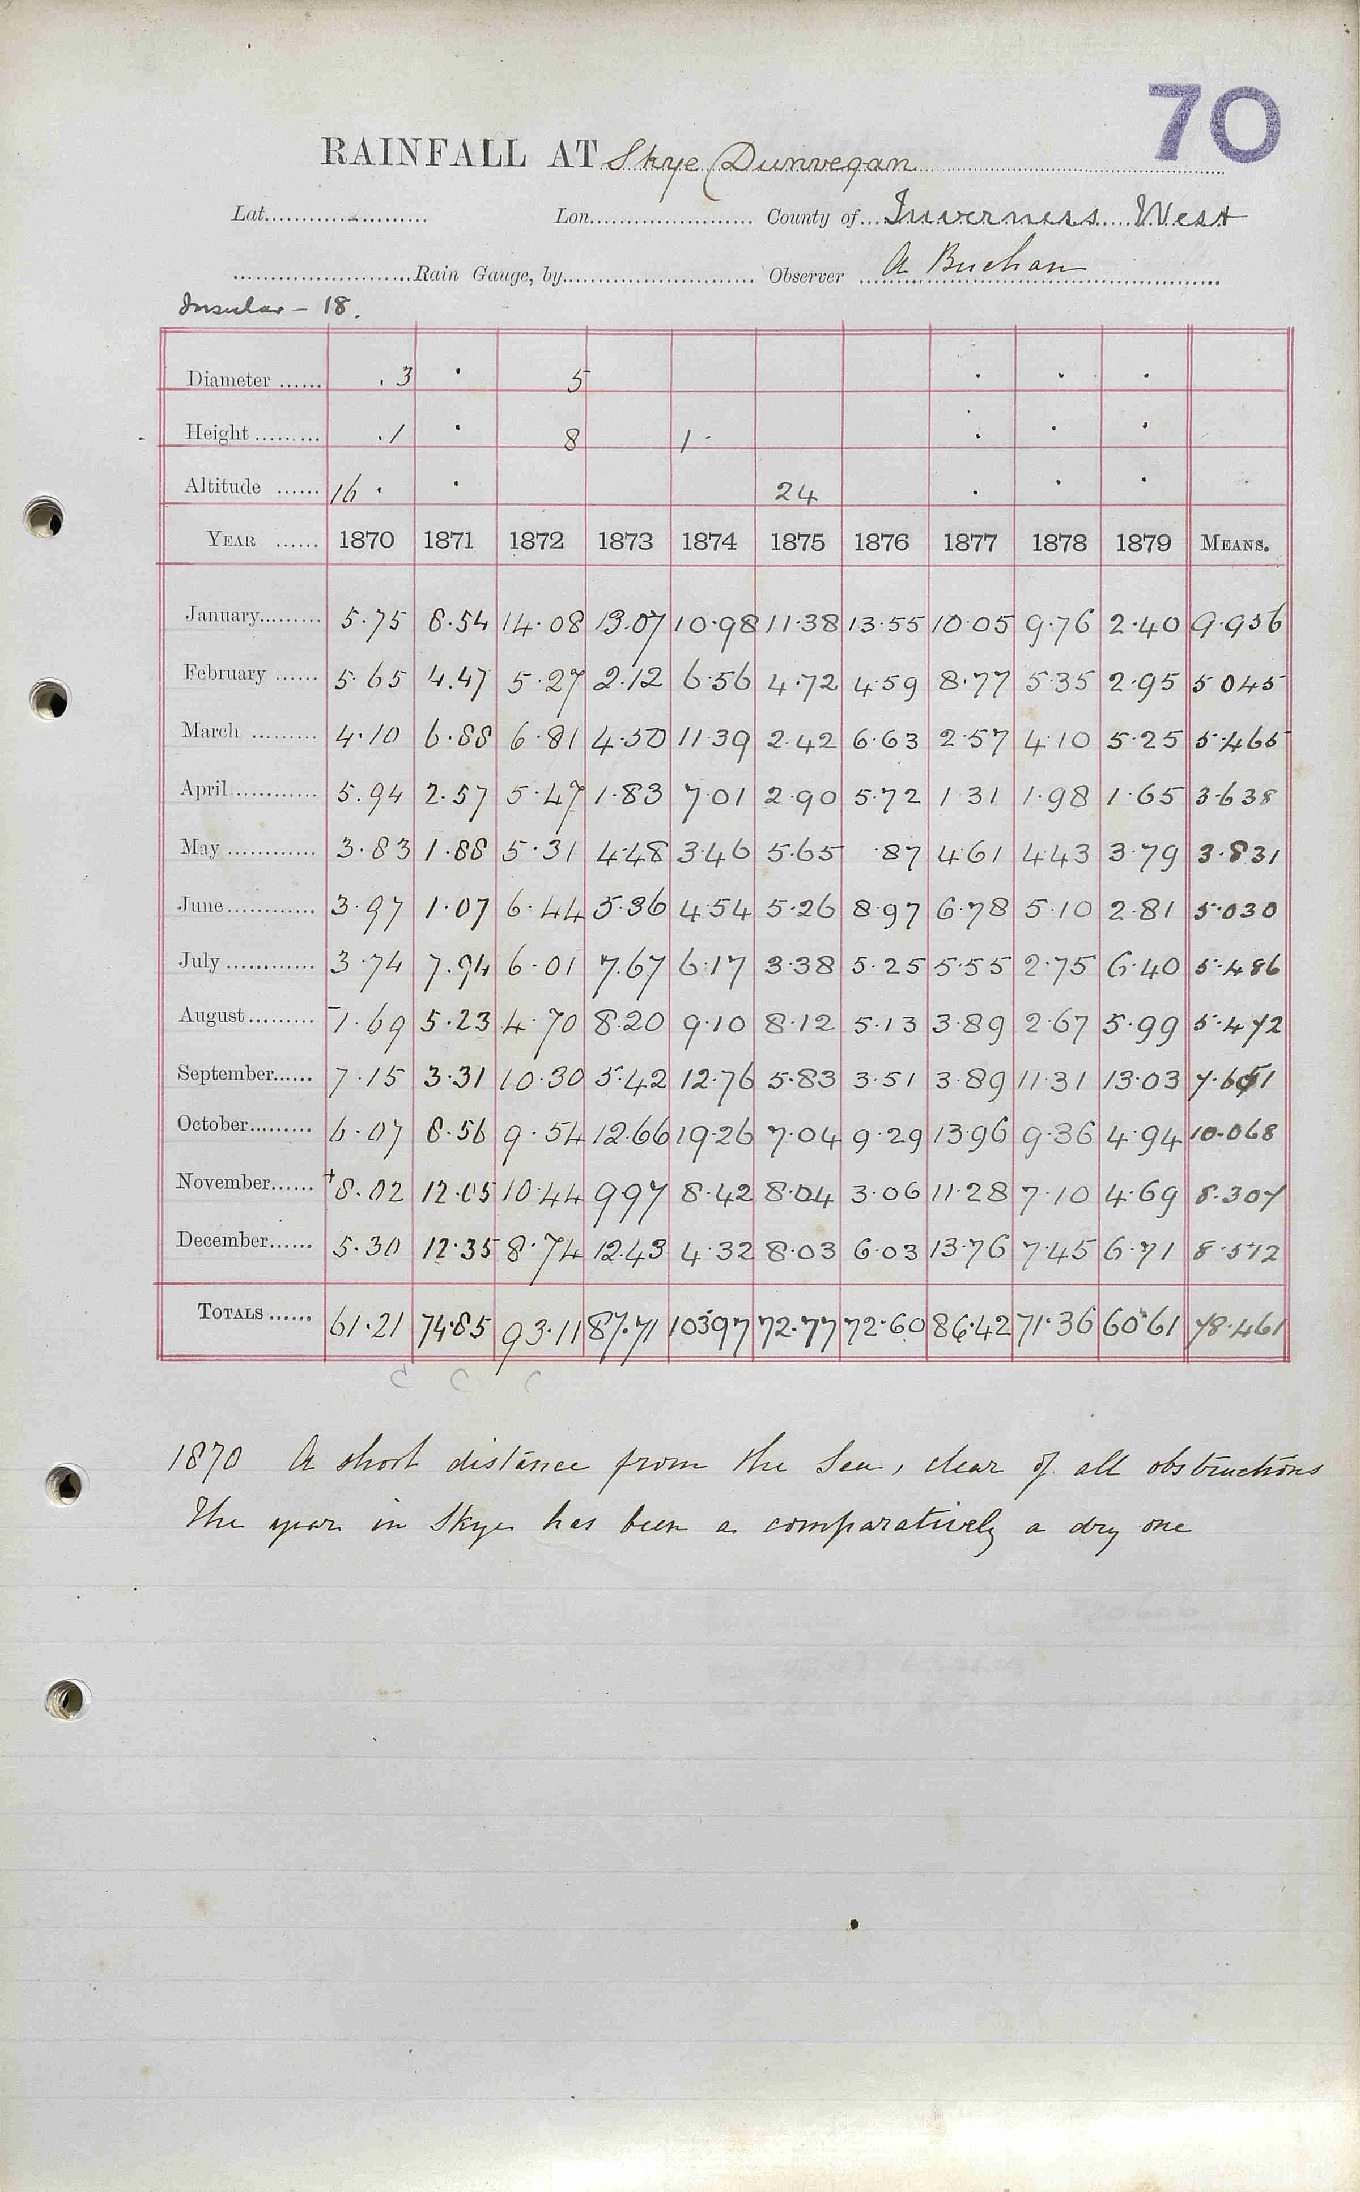 70
RAINFALL AT Skye (Dunvegan
Lat. Lon. County of Inverness West
Rain Gauge, by Observer A Buchan
Insular - 18.
Diameter ...... .3 5
Height ......... .1 8 1
Altitude ...... 16 24
YEAR ...... 1870 1871 1872 1873 1874 1875 1876 1877 1878 1879 MEANS.
January......... 5.75 8.54 14.08 13.07 10.98 11.38 13.55 10.05 9.76 2.40 9.956
February ...... 5.65 4.47 5.27 2.12 6.56 4.72 4.59 8.77 5.35 2.95 5.045
March ......... 4.10 6.88 6.81 4.50 11.39 2.42 6.63 2.57 4.10 5.25 5.465
April............ 5.94 2.57 5.47 1.83 7.01 2.90 5.72 1.31 1.98 1.65 3.638
May ............ 3.83 1.88 5.31 4.48 3.46 5.65 .87 4.61 4.43 3.79 3.831
June............ 3.97 1.07 6.44 5.36 4.54 5.26 8.97 6.78 5.10 2.81 5.030
July ............ 3.74 7.94 6.01 7.67 6.17 3.38 5.25 5.55 2.75 6.40 5.486
August......... -1.69 5.23 4.70 8.20 9.10 8.12 5.13 3.89 2.67 5.99 5.472
September...... 7.15 3.31 10.30 5.42 12.76 5.83 3.51 3.89 11.31 13.03 7.651
October......... 6.07 8.56 9.54 12.66 19.26 7.04 9.29 13.96 9.36 4.94 10.068
November...... +8.02 12.05 10.44 9.97 8.42 8.04 3.06 11.28 7.10 4.69 8.307
December...... 5.30 12.35 8.74 12.43 4.32 8.03 6.03 13.76 7.45 6.71 8.512
TOTALS ...... 61.21 74.85 93.11 87.71 103.97 72.77 72.60 86.42 71.36 60.61 78.461
C C C
1870 A short distance from the Sea, clear of all obstructions
The year in Skye has been a comparatively a dry one